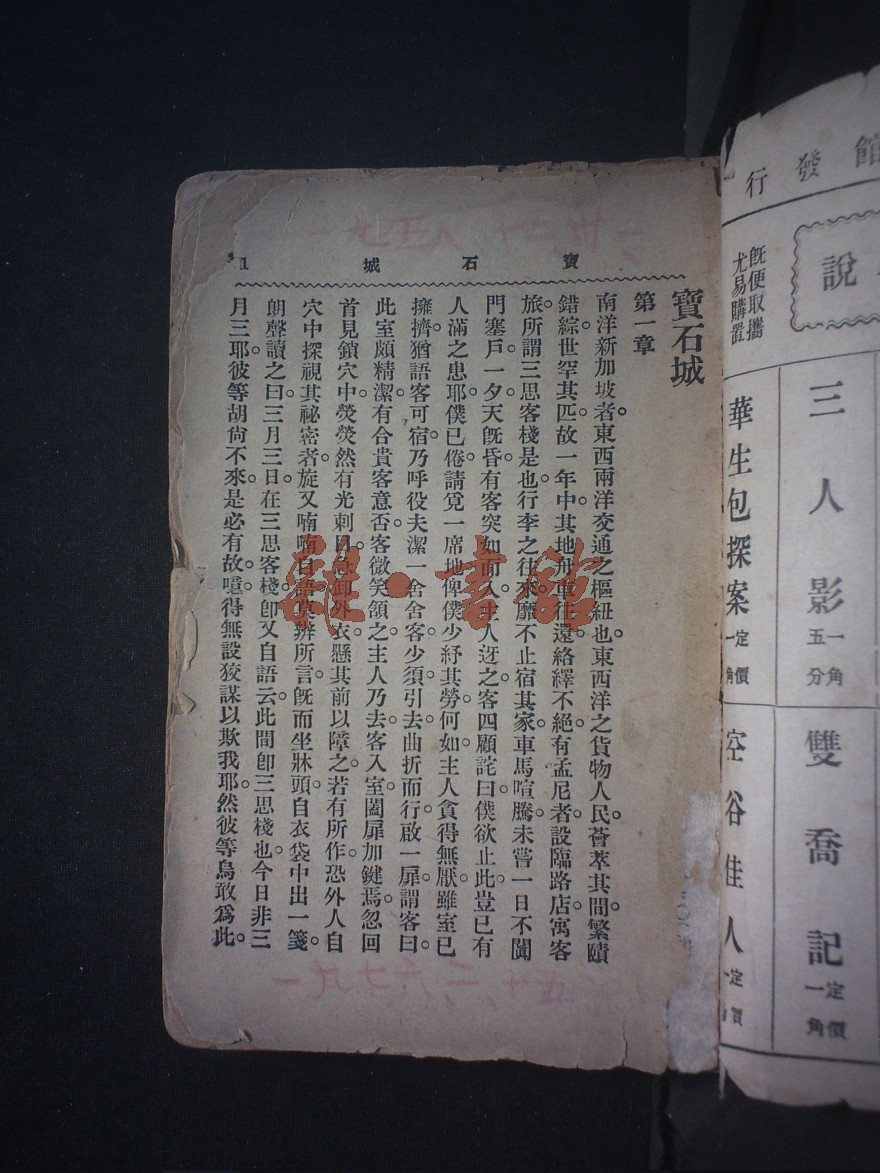 館發行
說
既便取攜
尤易購置
三人影
一角
五分
雙喬記
定價
一角
華生包探案
定價
一角
空谷佳人
定
一
寶石城 1
寶石城
第一章
南洋新加坡者。東西兩洋交通之樞紐也。東西洋之貨物人民。薈萃其間。繁賾
錯綜。世罕其匹。故一年中。其地舟車往還。絡繹不絕。有孟尼者。設臨路店。寓客
旅。所謂三思客棧是也。行李之往來。靡不止宿其家。車馬喧騰。未嘗一日不闐
門塞戶。一夕天旣昏。有客突如而入。主人迓之。客四顧詫曰。僕欲止此。豈已有
人滿之患耶。僕已倦。請覓一席地。俾僕少紓其勞何如。主人貪得無厭。雖室已
擁擠。猶語客可宿。乃呼役夫潔一舍舍客。少須引去。曲折而行。啟一扉。謂客曰。
此室頗精潔。有合貴客意否。客微笑頷之。主人乃去。客入室。闔扉加鍵焉。忽回
首見鎖穴中。熒熒然有光刺目。急卸外衣。懸其前以障之。若有所作。恐外人自
穴中探視其祕密者。旋又喃喃自語。莫辨所言。旣而坐牀頭。自衣袋中出一箋。
朗聲讀之曰。三月三日。在三思客棧。卽又自語云。此間卽三思棧也。今日非三
月三耶。彼等胡尙不來。是必有故。噫。得無設狡謀以欺我耶。然彼等烏敢爲此。
雜·書館